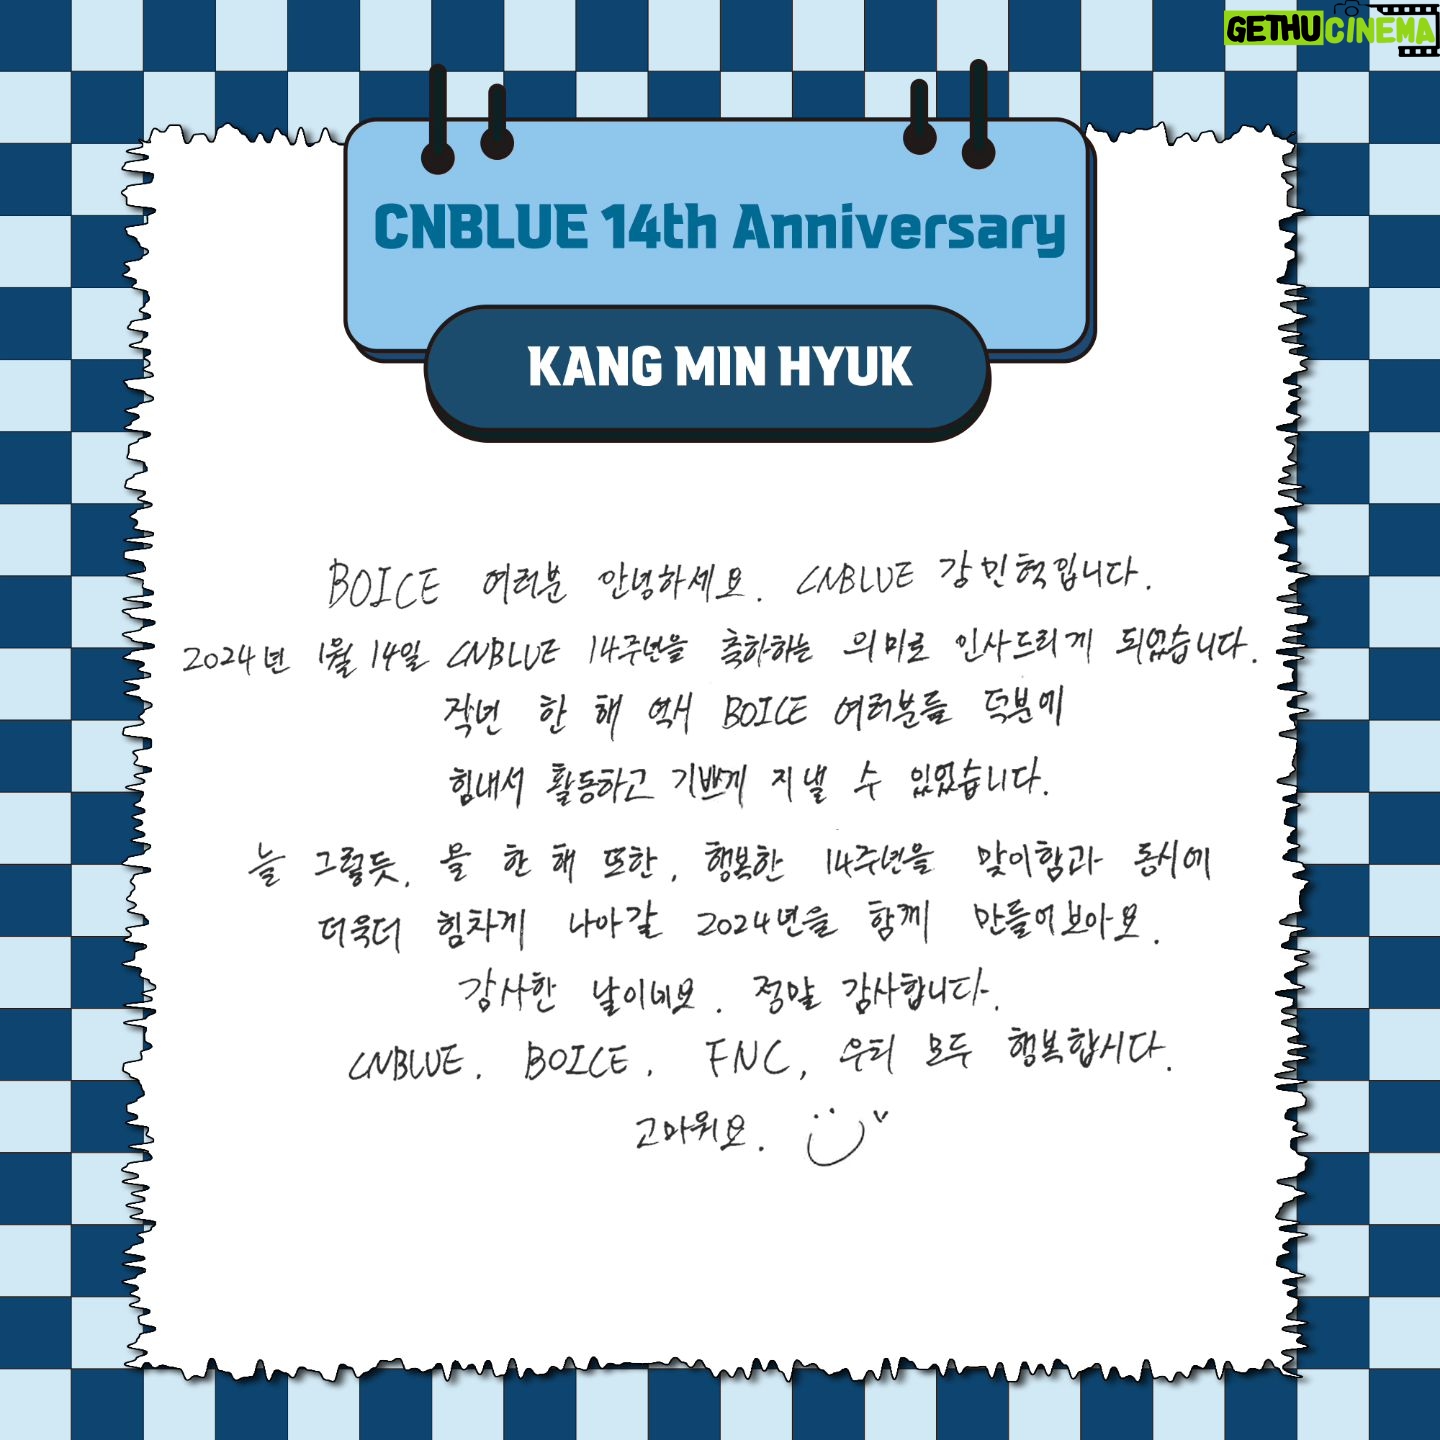 GETHUCINEMA
CNBLUE 14th Anniversary
KANG MIN HYUK
BOICE 여러분 안녕하세요. CNBLUE 강민혁입니다.
2024년 1월 14일 CNBLUE 14주년을 축하하는 의미로 인사드리게 되었습니다.
작년 한 해 역시 BOICE 여러분들 덕분에
힘내서 활동하고 기쁘게 지낼 수 있었습니다.
늘 그렇듯, 올 한 해 또한, 행복한 14주년을 맞이함과 동시에
더욱더 힘차게 나아갈 2024년을 함께 만들어보아요.
감사한 날이네요. 정말 감사합니다.
CNBLUE. BOICE. FNC, 우리 모두 행복합시다.
고마워요.